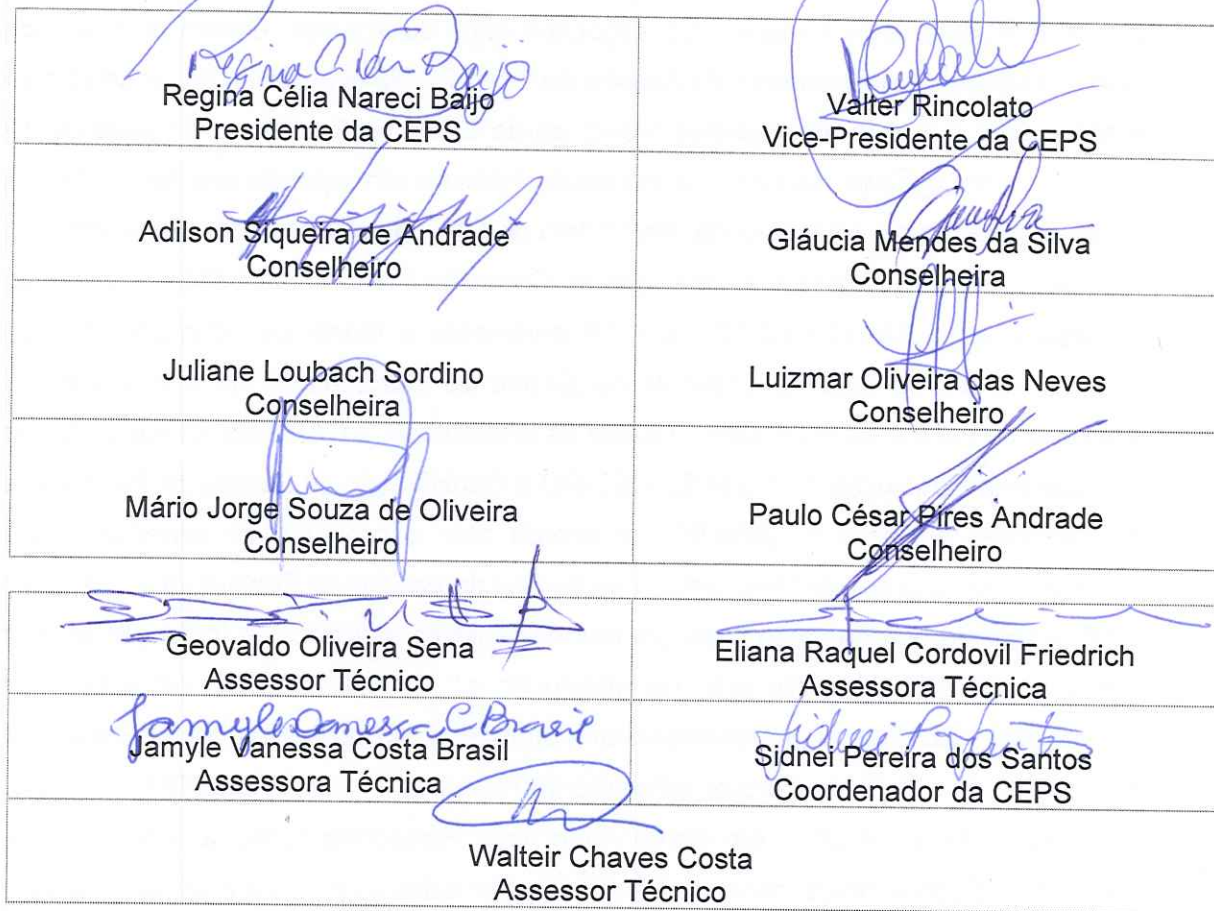 Regina Célia Nareci Baijo
Presidente da CEPS
Valter Rincolato
Vice-Presidente da CEPS
Adilson Siqueira de Andrade
Conselheiro
Gláucia Mendes da Silva
Conselheira
Juliane Loubach Sordino
Conselheira
Luizmar Oliveira das Neves
Conselheiro
Mário Jorge Souza de Oliveira
Conselheiro
Paulo César Pires Andrade
Conselheiro
Geovaldo Oliveira Sena
Assessor Técnico
Eliana Raquel Cordovil Friedrich
Assessora Técnica
Jamyle Vanessa C Brasil
Jamyle Vanessa Costa Brasil
Assessora Técnica
Sidnei Pereira dos Santos
Coordenador da CEPS
Walteir Chaves Costa
Assessor Técnico